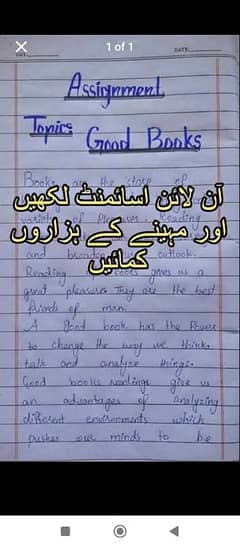 1 of 1
DATE:
Assignment
Topics Good Books
Books are the store of
آن لائن اسائمنٹ لکھیں
اور مہینے کے ہزاروں
کمائیں
Reading
and outlook.
Reading books gives us a
great pleasure. They are the best
friends of man.
A good book has the Power
to change the way we think,
talk and analyze things.
Good books readings give us
an advantages of analyzing
different environments which
pushes our minds to be